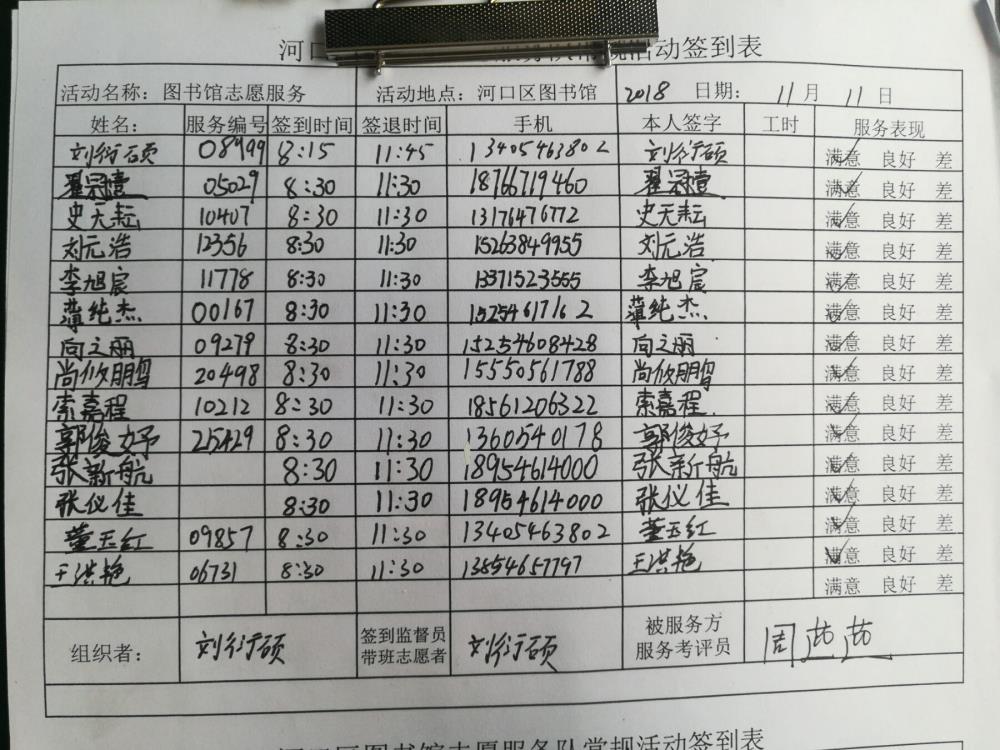 河口 活动签到表
活动名称：图书馆志愿服务 活动地点：河口区图书馆 2018 日期： 11月 11日
姓名： 服务编号 签到时间 签退时间 手机 本人签字 工时 服务表现
刘衍硕 08999 8:15 11:45 13405463802 刘衍硕 满意 良好 差
翟冠壹 05029 8:30 11:30 18766719460 翟冠壹 满意 良好 差
史天耘 10407 8:30 11:30 13176476772 史天耘 满意 良好 差
刘元浩 12356 8:30 11:30 15263849955 刘元浩 满意 良好 差
李旭宸 11778 8:30 11:30 13371523555 李旭宸 满意 良好 差
纯杰 00167 8:30 11:30 15254617162 纯杰 满意 良好 差
向之丽 09279 8:30 11:30 15254608428 向之丽 满意 良好 差
尚攸鹏 20498 8:30 11:30 15550561788 尚攸鹏 满意 良好 差
索嘉程 10212 8:30 11:30 18561206322 索嘉程 满意 良好 差
郭俊妤 25429 8:30 11:30 1360540178 郭俊妤 满意 良好 差
张新航 8:30 11:30 18954614000 张新航 满意 良好 差
张仪佳 8:30 11:30 18954614000 张仪佳 满意 良好 差
董玉红 09857 8:30 11:30 13405463802 董玉红 满意 良好 差
王洪艳 06731 8:30 11:30 13854657797 王洪艳 满意 良好 差
满意 良好 差
组织者： 刘衍硕 签到监督员 刘衍硕 被服务方 周茹茹
带班志愿者 服务考评员
河口区图书馆志愿服务队常规活动签到表